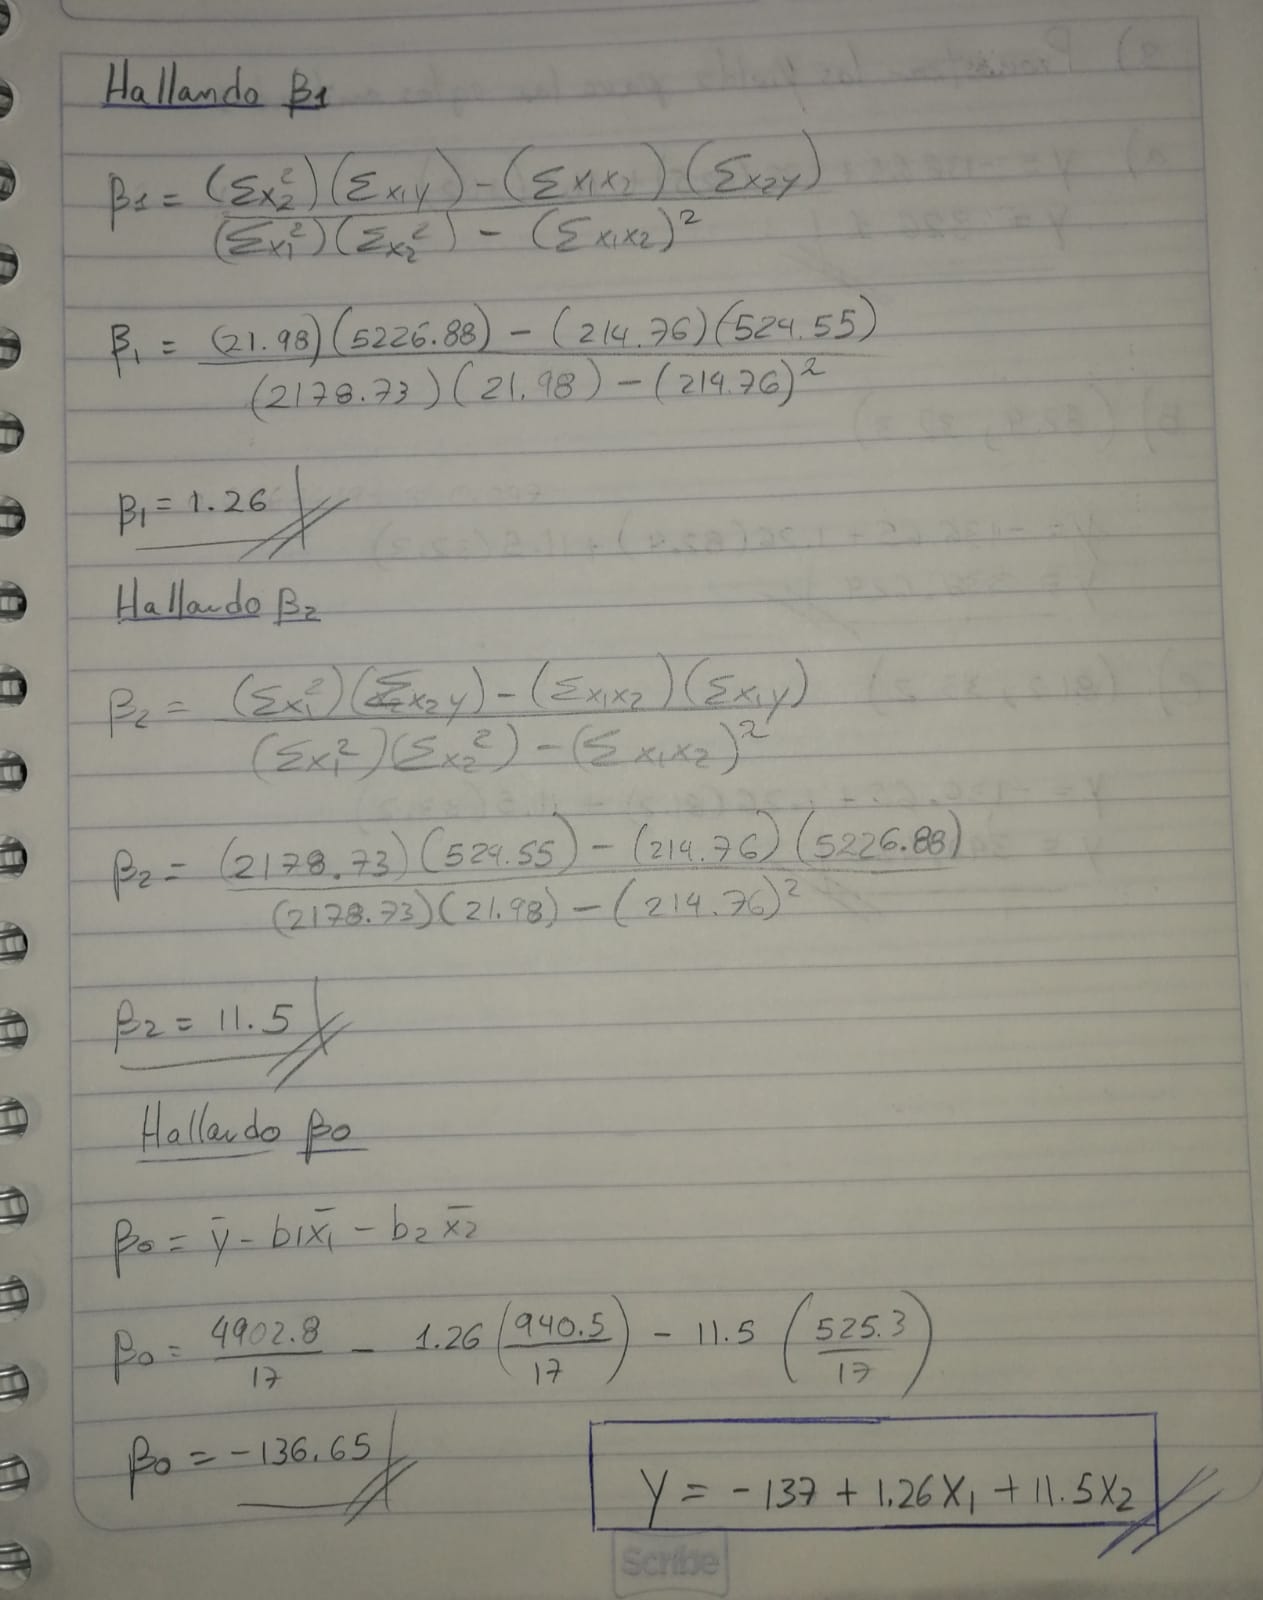 Hallando β1
β1 = (Σx2²)(Σx1y) - (Σx1x2)(Σx2y)
(Σx1²)(Σx2²) - (Σx1x2)²
β1 = (21.98)(5226.88) - (214.76)(524.55)
(2178.73)(21.98) - (214.76)²
β1 = 1.26
Hallando β2
β2 = (Σx1²)(Σx2y) - (Σx1x2)(Σx1y)
(Σx1²)(Σx2²) - (Σx1x2)²
β2 = (2178.73)(524.55) - (214.76)(5226.88)
(2178.73)(21.98) - (214.76)²
β2 = 11.5
Hallando β0
β0 = ȳ - b1x̄1 - b2 x̄2
β0 = 4902.8/17 - 1.26 (940.5/17) - 11.5 (525.3/17)
β0 = -136.65
Y = -137 + 1.26X1 + 11.5X2
Scribe